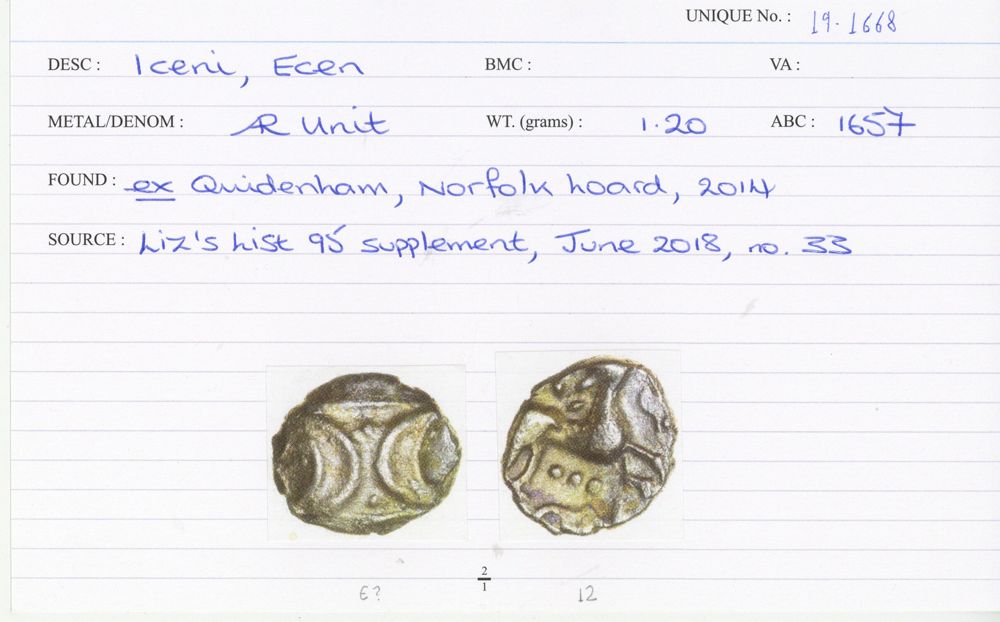 UNIQUE No. : 19. 1668
DESC : Iceni, Ecen BMC : VA :
METAL/DENOM : AR Unit WT. (grams) : 1.20 ABC : 1657
FOUND : ex Quidenham, Norfolk hoard, 2014
SOURCE : Liz's List 95 supplement, June 2018, no. 33
2
1
6? 12